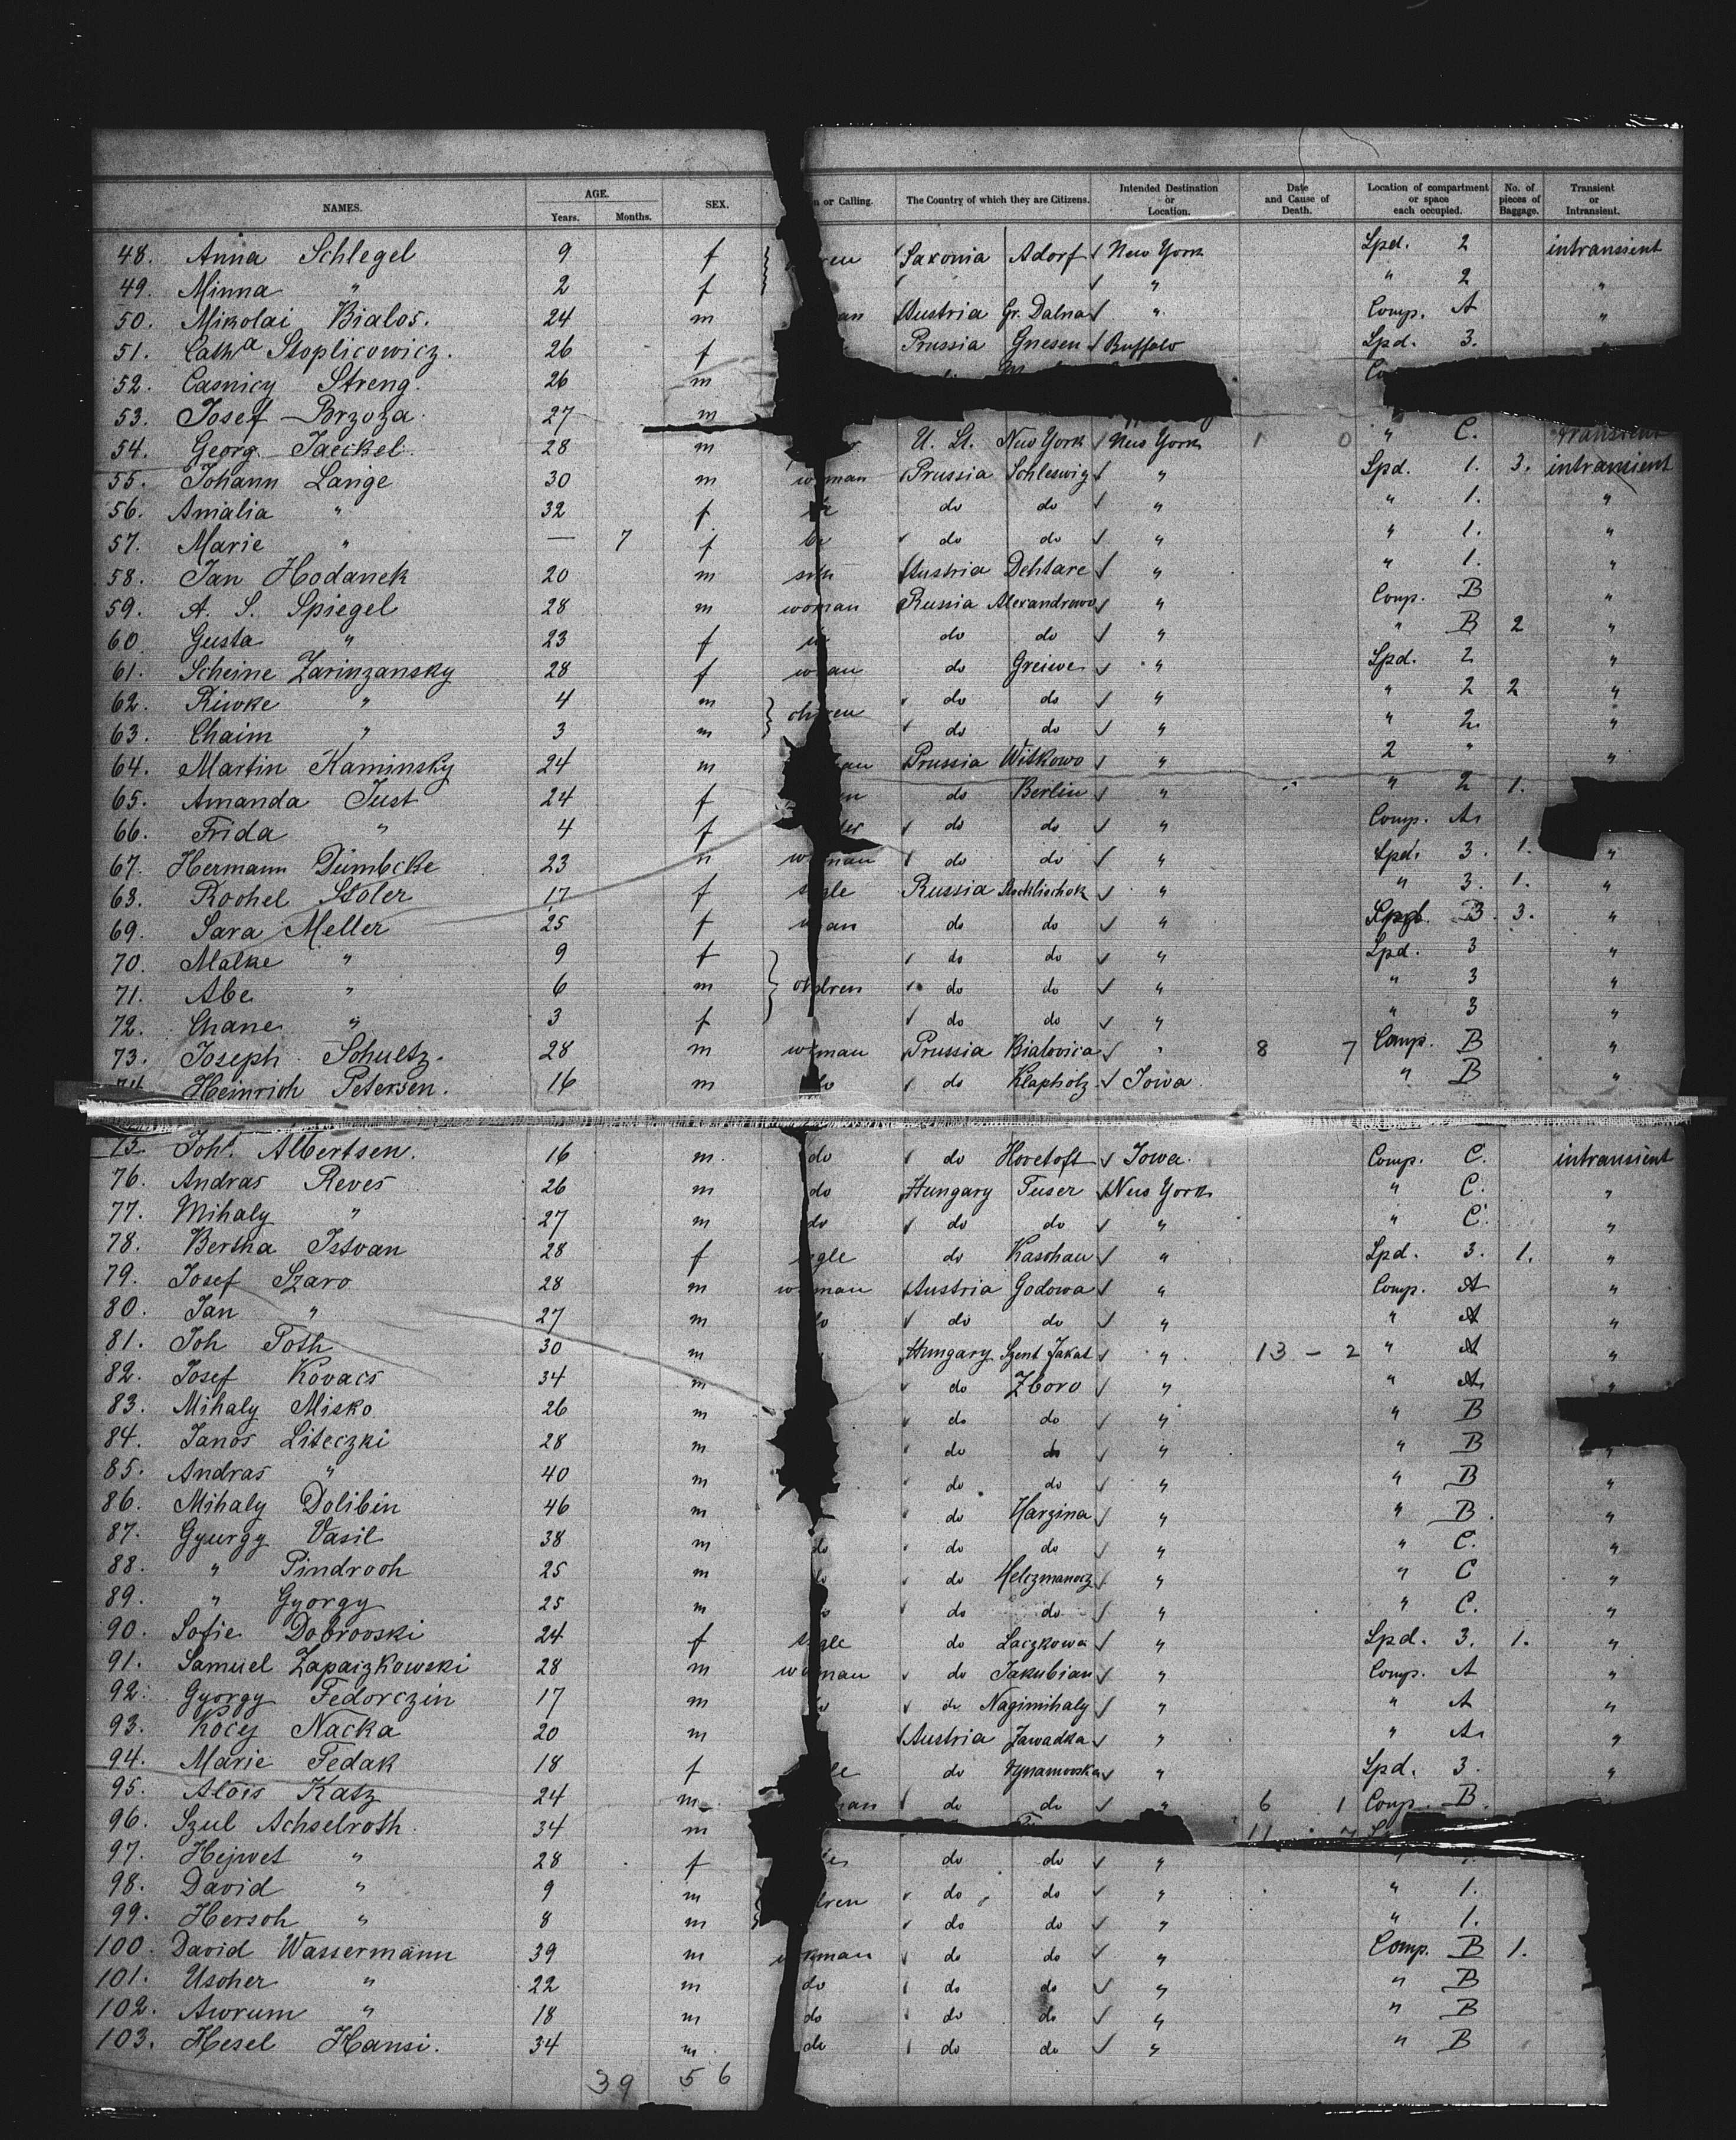 NAMES. AGE. Years. Months. SEX. or Calling. The Country of which they are Citizens. Intended Destination or Location. Date and Cause of Death. Location of compartment or space each occupied. No. of pieces of Baggage. Transient or Intransient.
48. Anna Schlegel 9 f ren Saxonia Adorf New York Spd. 2 intransient
49. Minna " 2 f " " 2 "
50. Mikolai Bialos. 24 m an Austria Gr. Dalna " Comp. A "
51. Cath a Stoplicowicz. 26 f Prussia Gnesen Buffalo Spd. 3.
52. Casnicy Streng. 26 m
53. Josef Brzoza. 27 m
54. Georg Jaeckel. 28 m U. St. New York New York 1 0 " C. transient
55. Johann Lange 30 m Prussia Schleswig " Spd. 1. 3. intransient
56. Amalia " 32 f do do " " 1. "
57. Marie " — 7 f do do " " 1. "
58. Jan Hodanek 20 m Austria Dehtare " " 1. "
59. A. S. Spiegel 28 m woman Russia Alexandrowo " Comp. B "
60. Gusta " 23 f do do " " B 2 "
61. Scheine Zarinzansky 28 f do Greiwe " Spd. 2 "
62. Riwke " 4 m do do " " 2 2 "
63. Chaim " 3 m do do " " 2. "
64. Martin Kaminsky 24 m Prussia Witkowo " 2 " "
65. Amanda Just 24 f do Berlin " " 2 1.
66. Frida " 4 f do do " Comp. A
67. Hermann Dümbcke 23 m do do " Spd. 3. 1. "
68. Rochel Stoler 17 f Russia " " 3. 1. "
69. Sara Meller 25 f do do " 3. 3. "
70. Malke " 9 f do do " Spd. 3 "
71. Abe " 6 m do do " " 3 "
72. Chane " 3 f do do " " 3 "
73. Joseph Schultz. 28 m Prussia Bialovica " 8 7 Comp. B "
74. Heinrich Petersen. 16 m do do Klapholz Iowa " B "
75. Joh. Albertsen. 16 m. do do Hovetoft Iowa. Comp. C. intransient
76. Andras Reves 26 m do Hungary Tuser New York " C. "
77. Mihaly " 27 m do do do " " C. "
78. Bertha Istvan 28 f do Kaschau " Spd. 3. 1. "
79. Josef Szaro 28 m Austria Godowa " Comp. A "
80. Jan " 27 m do do " " A "
81. Joh Toth 30 m Hungary Szent Jakat " 13 - 2 " A "
82. Josef Kovacs 34 m do Zboro " " A "
83. Mihaly Misko 26 m do do " " B
84. Janos Liteczki 28 m do do " " B "
85. Andras " 40 m do do " " B "
86. Mihaly Dolibin 46 m do Harzina " " B. "
87. Gyurgy Vasil 38 m do do do " " C. "
88. " Pindroch 25 m do Helczmanocz " " C "
89. " Gyorgy 25 m do do " " C. "
90. Sofie Dobrovski 24 f do Laczkowa " Spd. 3. 1. "
91. Samuel Zapaizkowski 28 m do Jakubian " Comp. A "
92. Gyorgy Fedorczin 17 m do Nagimihaly " " A "
93. Kocej Nacka 20 m Austria Zawadka " " A "
94. Marie Fedak 18 f do Tynamovska " Spd. 3. "
95. Alois Katz 24 m do do " 6 1 Comp. B.
96. Szul Achselroth. 34 m 11
97. Hejwet " 28 f do do "
98. David " 9 m do do " " 1.
99. Hersch " 8 m do do " " 1.
100. David Wassermann 39 m do do " Comp. B 1.
101. Uscher " 22 m do do do " " B
102. Awrum " 18 m do do do " " B
103. Hesel Hansi. 34 m do do do " " B
39 56